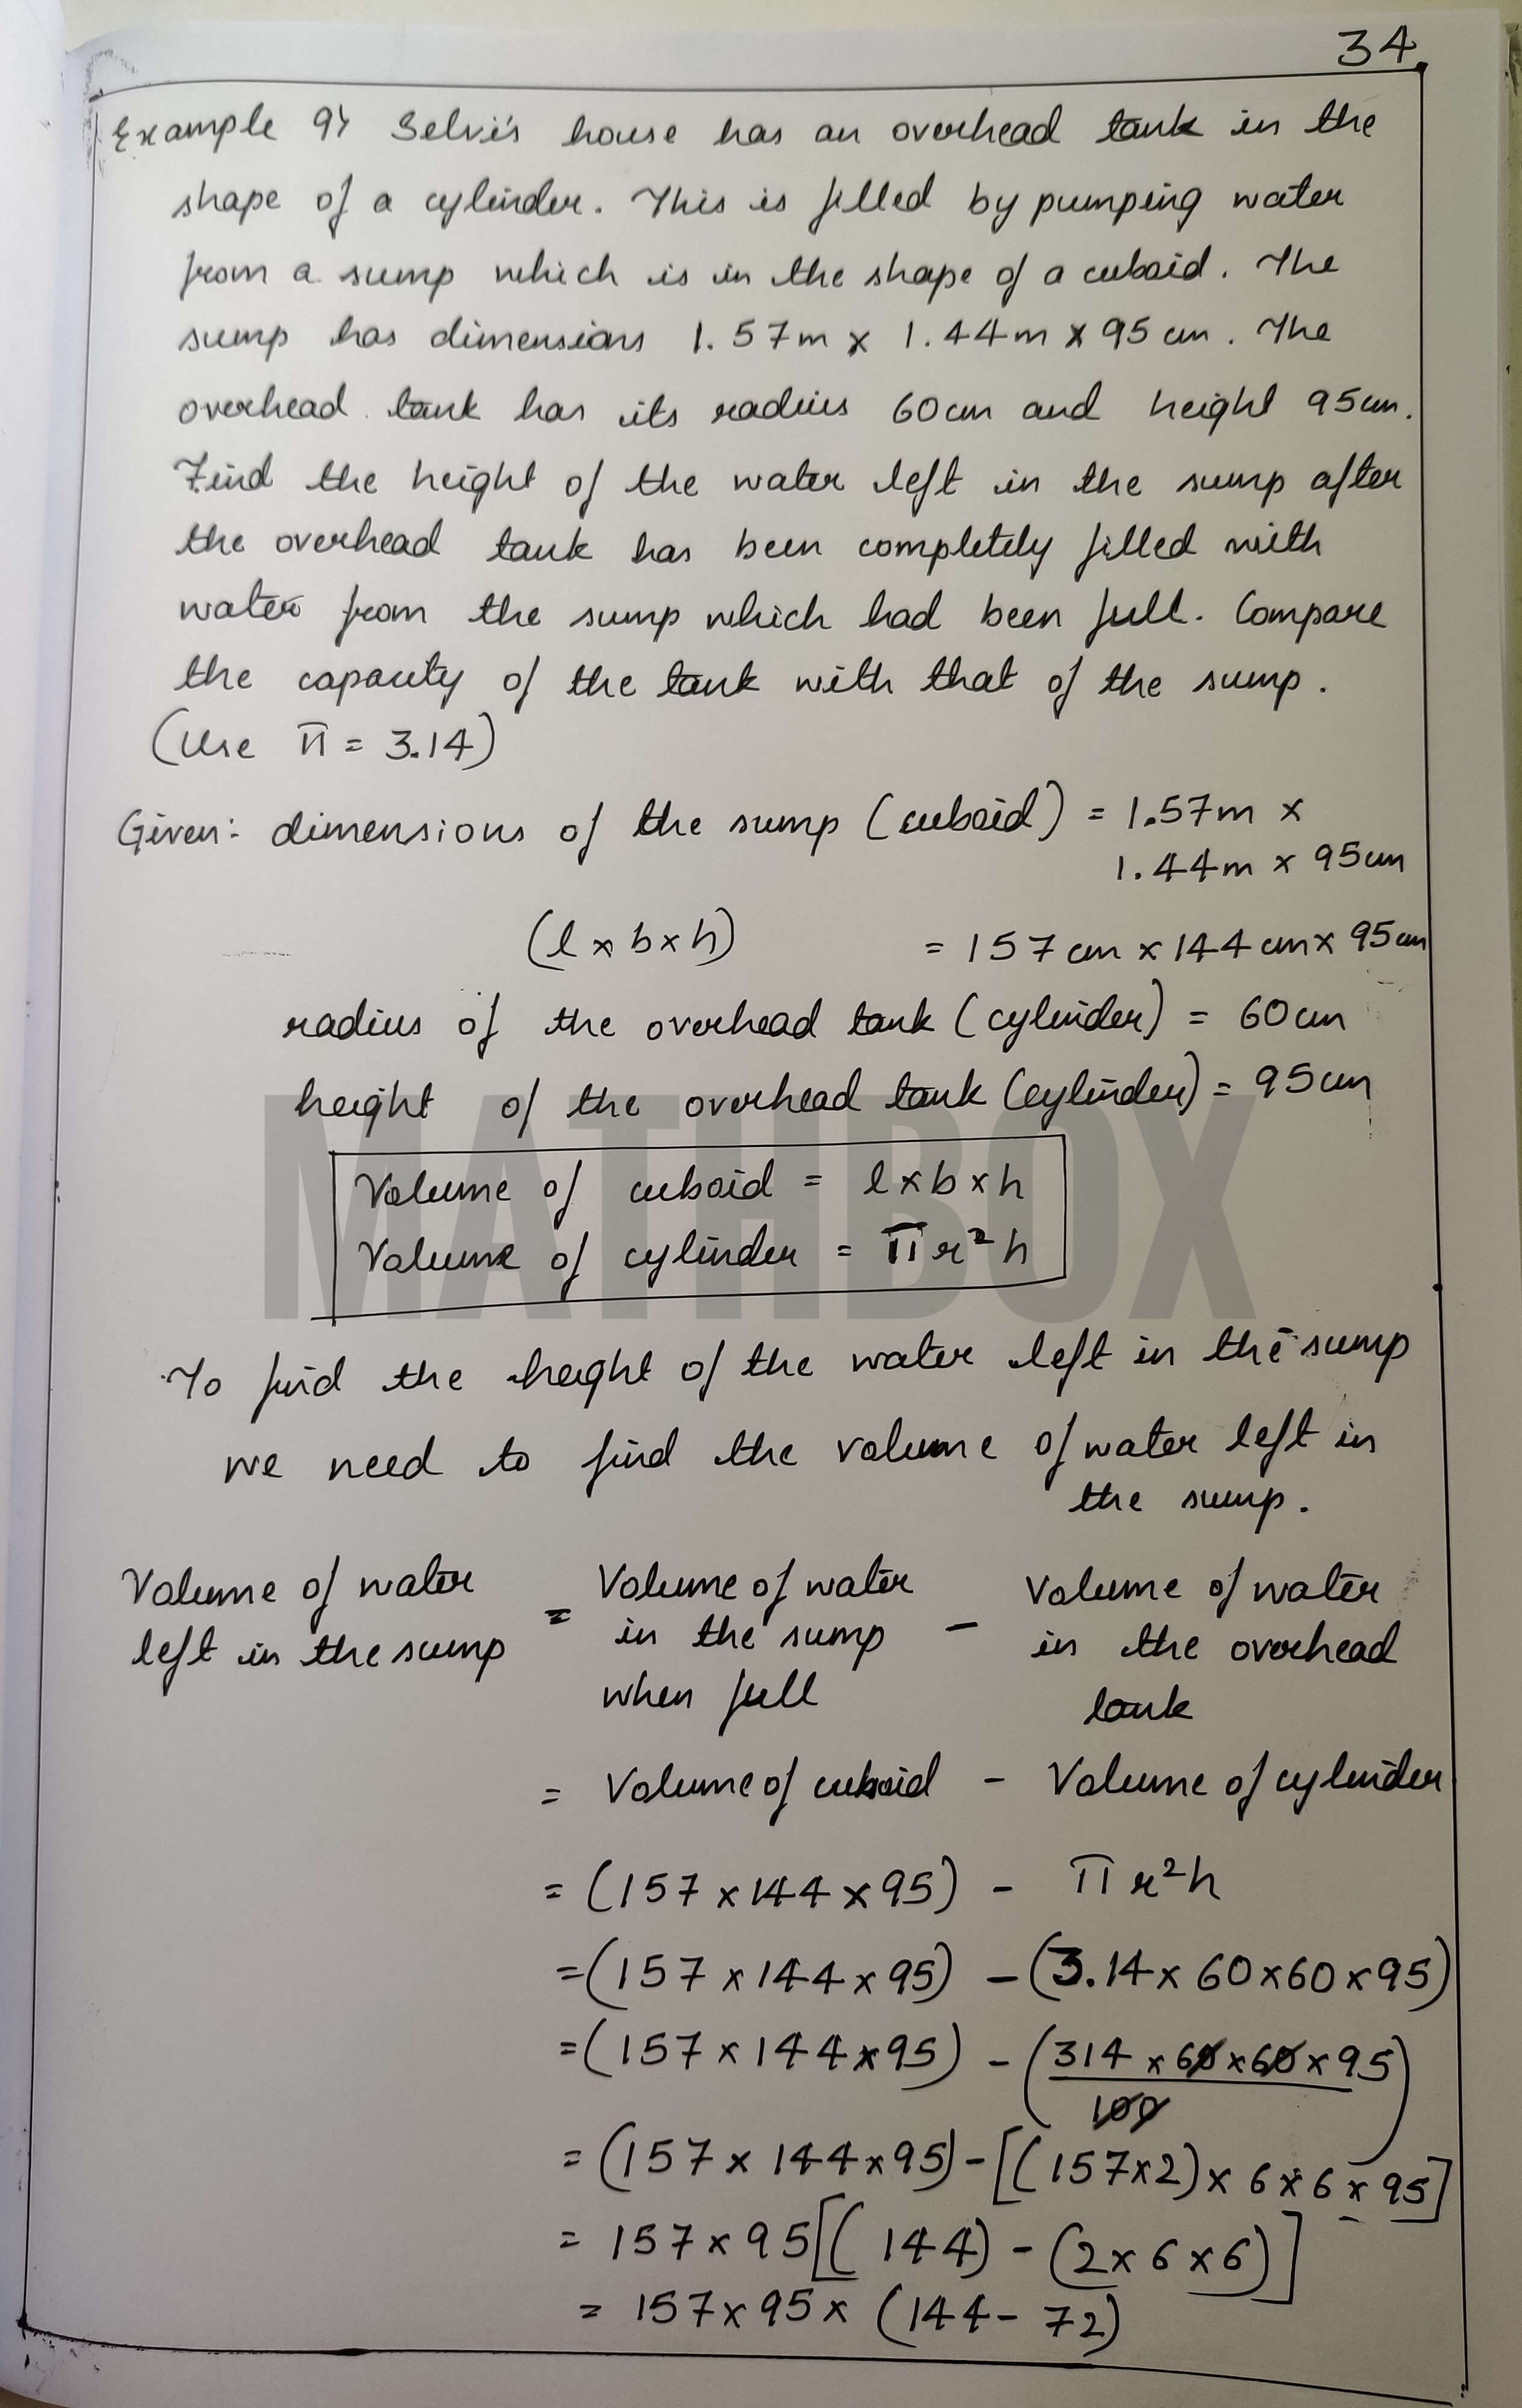 34
Example 9) Selvi's house has an overhead tank in the
shape of a cylinder. This is filled by pumping water
from a sump which is in the shape of a cuboid. The
sump has dimensions 1.57m x 1.44m x 95cm. The
overhead tank has its radius 60cm and height 95cm.
Find the height of the water left in the sump after
the overhead tank has been completely filled with
water from the sump which had been full. Compare
the capacity of the tank with that of the sump.
(Use π = 3.14)
Given: dimensions of the sump (cuboid) = 1.57m x
1.44m x 95cm
(l x b x h) = 157cm x 144cm x 95cm
radius of the overhead tank (cylinder) = 60cm
height of the overhead tank (cylinder) = 95cm
MATHBOX
Volume of cuboid = l x b x h
Volume of cylinder = πr²h
To find the height of the water left in the sump
we need to find the volume of water left in
the sump.
Volume of water left in the sump = Volume of water in the sump when full - Volume of water in the overhead tank
= Volume of cuboid - Volume of cylinder
= (157 x 144 x 95) - πr²h
= (157 x 144 x 95) - (3.14 x 60 x 60 x 95)
= (157 x 144 x 95) - (314 x 60 x 60 x 95 / 100)
= (157 x 144 x 95) - [(157x2) x 6 x 6 x 95]
= 157 x 95 [(144) - (2 x 6 x 6)]
= 157 x 95 x (144 - 72)